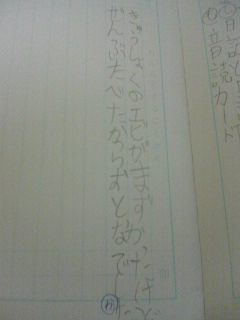 音読カード
きゅうしょくのエビがまずかったけど
ぜんぶたべたからおとなでした